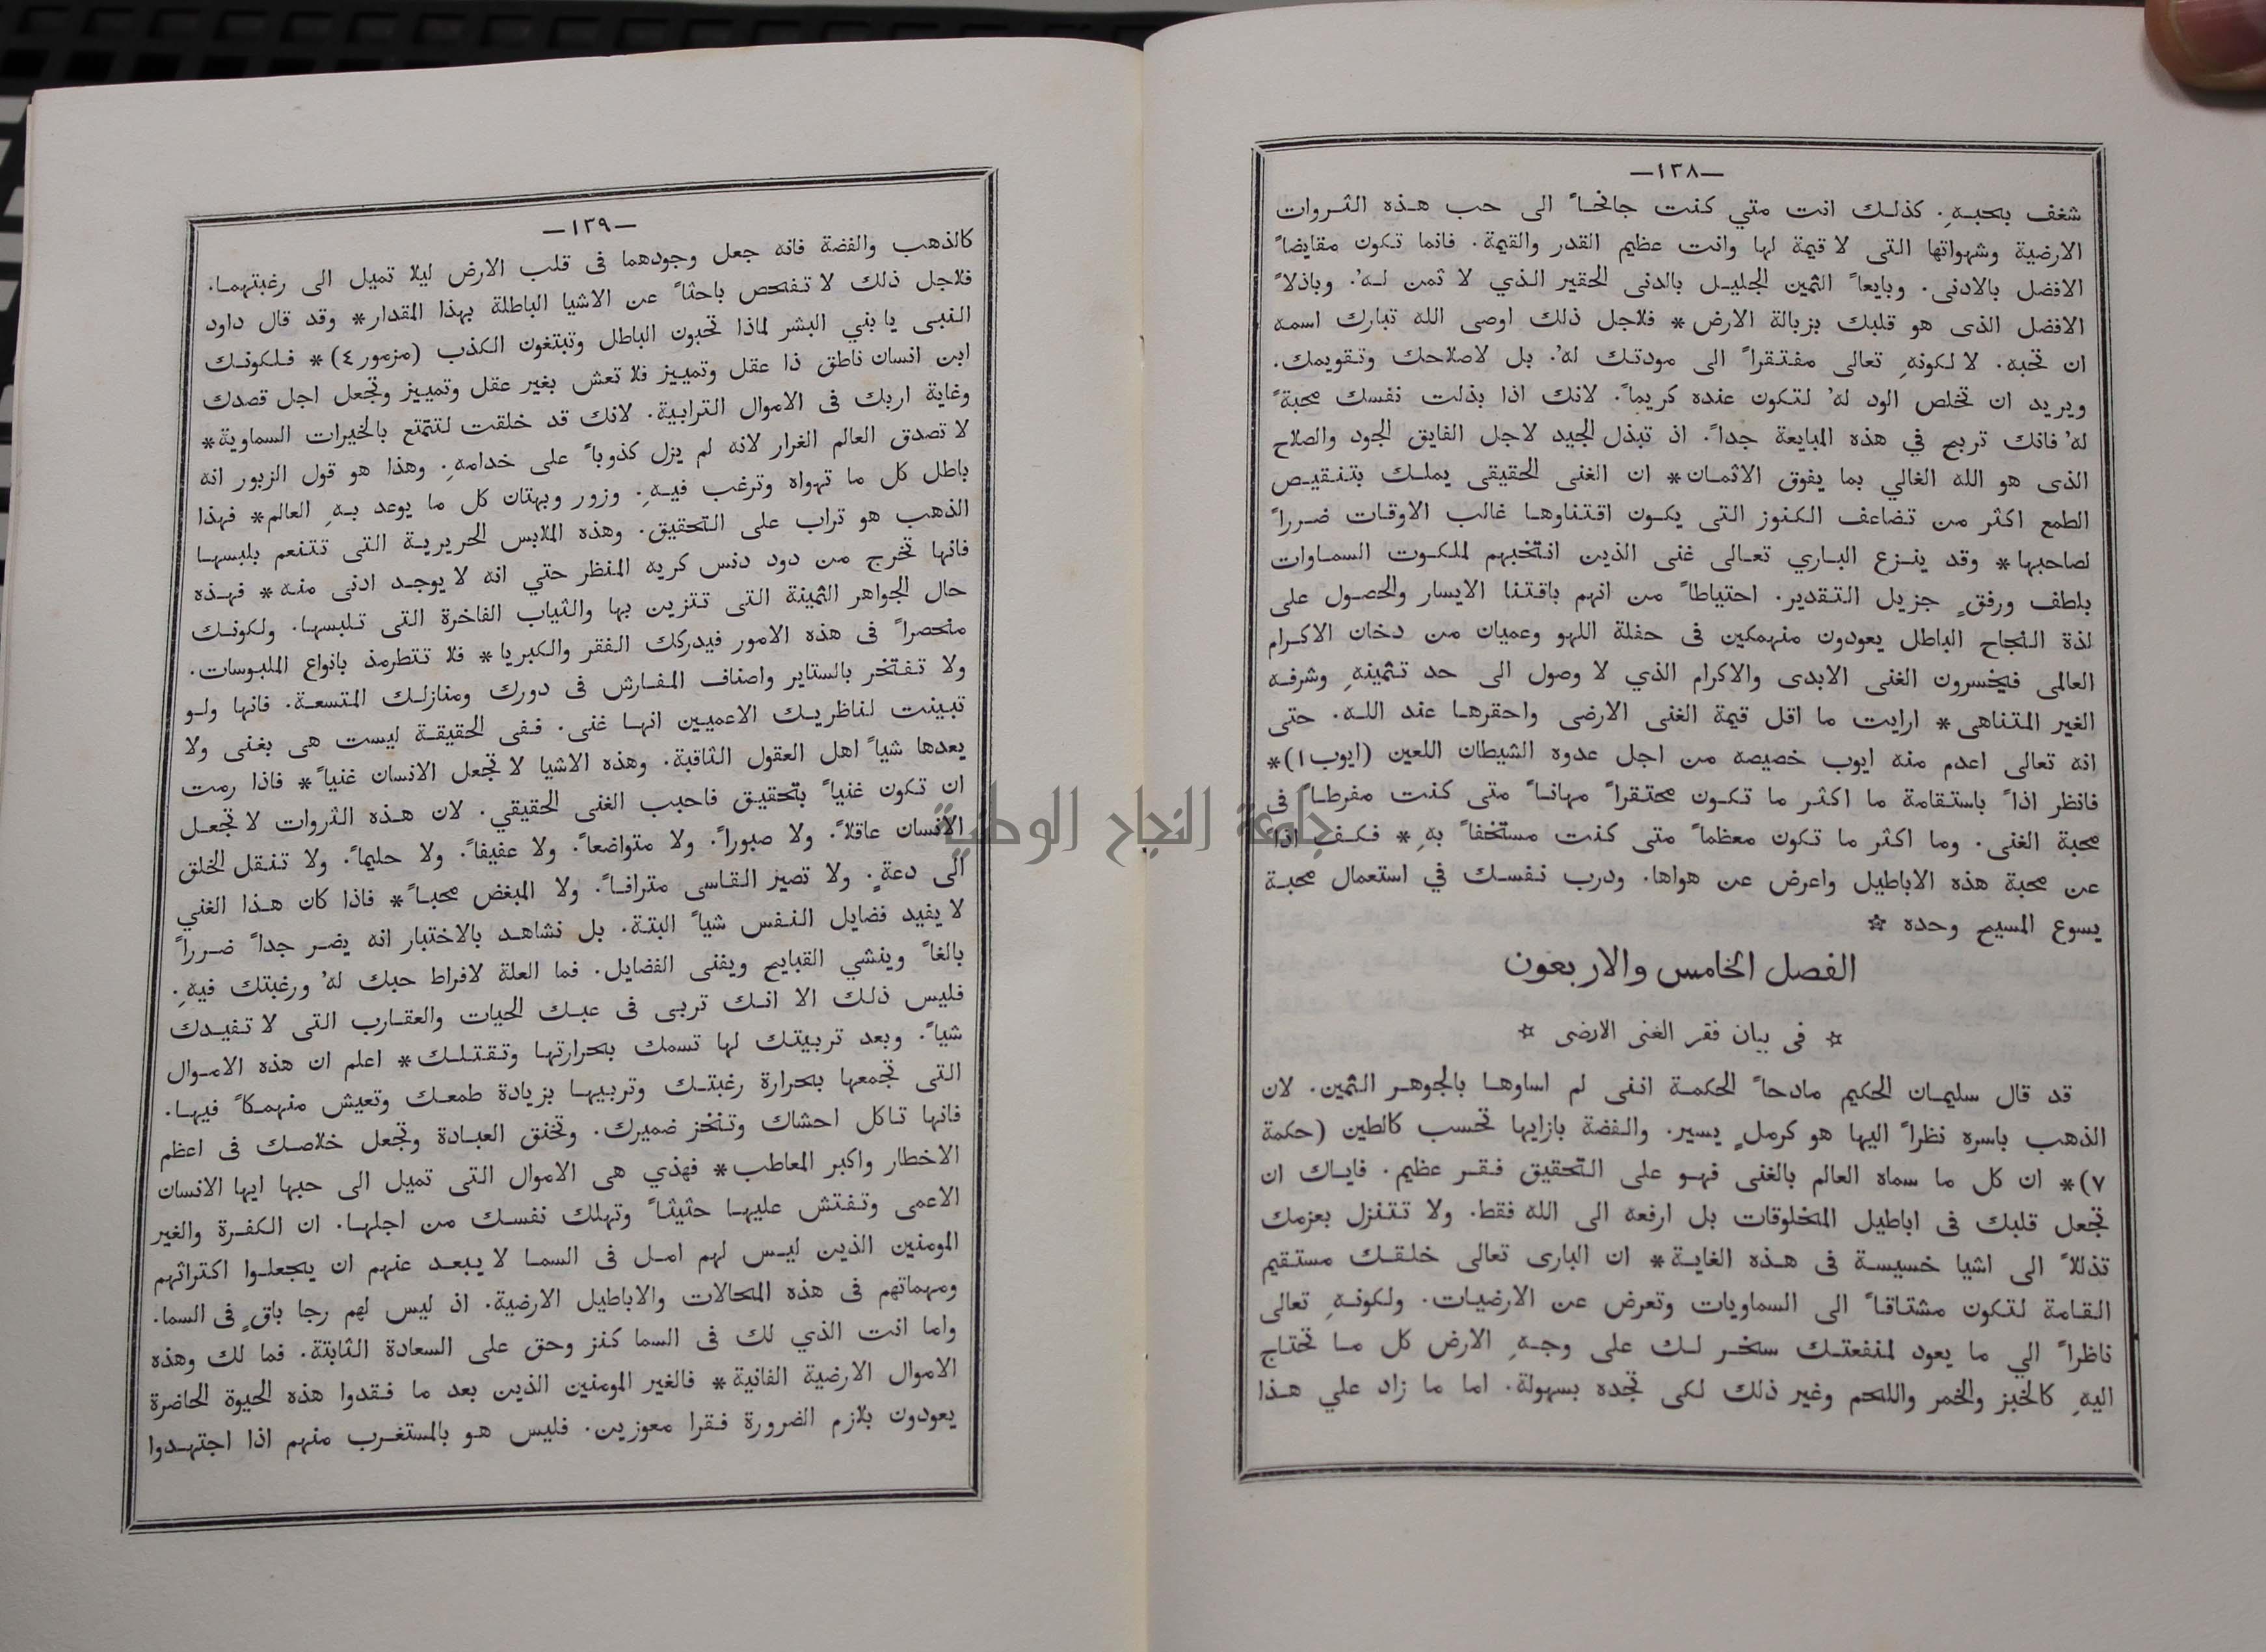 —١٣٨—
شغف بحبهِ. كذلك انت متي كنت جانحاً الى حب هذه الثروات
الارضية وشهواتها التى لا قيمة لها وانت عظيم القدر والقيمة. فانما تكون مقايضاً
الافضل بالادنى. وبايعاً الثمين الجليل بالدنى الحقير الذي لا ثمن لهُ. وباذلاً
الافضل الذى هو قلبك بزبالة الارض* فلاجل ذلك اوصى الله تبارك اسمه
ان تحبه. لا لكونهِ تعالى مفتقراً الى مودتك لهُ. بل لاصلاحك وتقويمك.
ويريد ان تخلص الود لهُ لتكون عنده كريماً. لانك اذا بذلت نفسك محبةً
لهُ فانك تربح في هذه المبايعة جداً. اذ تبذل الجيد لاجل الفايق الجود والصلاح
الذى هو الله الغالي بما يفوق الاثمان* ان الغنى الحقيقى يملك بتنقيص
الطمع اكثر من تضاعف الكنوز التى يكون اقتناوها غالب الاوقات ضرراً
لصاحبها* وقد ينزع الباري تعالى غنى الذين انتخبهم لملكوت السماوات
بلطف ورفقٍ جزيل التقدير. احتياطاً من انهم باقتنا الايسار والحصول على
لذة النجاح الباطل يعودون منهمكين فى حفلة اللهو وعميان من دخان الاكرام
العالمى فيخسرون الغنى الابدى والاكرام الذي لا وصول الى حد تثمينهِ وشرفه
الغير المتناهى* ارايت ما اقل قيمة الغنى الارضى واحقرها عند الله. حتى
انه تعالى اعدم منه ايوب خصيصه من اجل عدوه الشيطان اللعين (ايوب١)*
فانظر اذاً باستقامة ما اكثر ما تكون محتقراً مهاناً متى كنت مفرطاً فى
محبة الغنى. وما اكثر ما تكون معظماً متى كنت مستخفاً بهِ* فكف اذاً
عن محبة هذه الاباطيل واعرض عن هواها. ودرب نفسك في استعمال محبة
يسوع المسيح وحده ☆
الفصل الخامس والاربعون
☆ فى بيان فقر الغنى الارضى ☆
قد قال سليمان الحكيم مادحاً الحكمة اننى لم اساوها بالجوهر الثمين. لان
الذهب باسره نظراً اليها هو كرملٍ يسير. والفضة بازايها تحسب كالطين (حكمة
٧)* ان كل ما سماه العالم بالغنى فهو على التحقيق فقر عظيم. فاياك ان
تجعل قلبك فى اباطيل المخلوقات بل ارفعه الى الله فقط. ولا تتنزل بعزمك
تذللاً الى اشيا خسيسة فى هذه الغاية* ان البارى تعالى خلقك مستقيم
القامة لتكون مشتاقاً الى السماويات وتعرض عن الارضيات. ولكونهِ تعالى
ناظراً الي ما يعود لمنفعتك سخر لك على وجهِ الارض كل ما تحتاج
اليهِ كالخبز والخمر واللحم وغير ذلك لكى تجده بسهولة. اما ما زاد علي هذا
—١٣٩—
كالذهب والفضة فانه جعل وجودهما فى قلب الارض ليلا تميل الى رغبتهما.
فلاجل ذلك لا تفحص باحثاً عن الاشيا الباطلة بهذا المقدار* وقد قال داود
النبى يا بني البشر لماذا تحبون الباطل وتبتغون الكذب (مزمور٤)* فلكونك
ابن انسان ناطق ذا عقل وتمييز فلا تعش بغير عقل وتمييز وتجعل اجل قصدك
وغاية اربك فى الاموال الترابية. لانك قد خلقت لتتمتع بالخيرات السماوية*
لا تصدق العالم الغرار لانه لم يزل كذوباً على خدامهِ. وهذا هو قول الزبور انه
باطل كل ما تهواه وترغب فيهِ. وزور وبهتان كل ما يوعد بهِ العالم* فهذا
الذهب هو تراب على التحقيق. وهذه الملابس الحريرية التى تتنعم بلبسها
فانها تخرج من دود دنس كريه المنظر حتي انه لا يوجد ادنى منه* فهذه
حال الجواهر الثمينة التى تتزين بها والثياب الفاخرة التى تلبسها. ولكونك
منحصراً فى هذه الامور فيدركك الفقر والكبريا* فلا تتطرمذ بانواع الملبوسات.
ولا تفتخر بالستاير واصناف المفارش فى دورك ومنازلك المتسعة. فانها ولو
تبينت لناظريك الاعميين انها غنى. ففى الحقيقة ليست هى بغنى ولا
يعدها شياً اهل العقول الثاقبة. وهذه الاشيا لا تجعل الانسان غنياً* فاذا رمت
ان تكون غنياً بتحقيق فاحبب الغنى الحقيقي. لان هذه الثروات لا تجعل
الانسان عاقلاً. ولا صبوراً. ولا متواضعاً. ولا عفيفاً. ولا حليماً. ولا تنقل الخلق
الى دعةٍ. ولا تصير القاسى مترافاً. ولا المبغض محباً* فاذا كان هذا الغني
لا يفيد فضايل النفس شياً البتة. بل نشاهد بالاختبار انه يضر جداً ضرراً
بالغاً وينشي القبايح ويفنى الفضايل. فما العلة لافراط حبك لهُ ورغبتك فيهِ.
فليس ذلك الا انك تربى فى عبك الحيات والعقارب التى لا تفيدك
شياً. وبعد تربيتك لها تسمك بحرارتها وتقتلك* اعلم ان هذه الاموال
التى تجمعها بحرارة رغبتك وتربيها بزيادة طمعك وتعيش منهمكاً فيها.
فانها تاكل احشاك وتنخز ضميرك. وتخنق العبادة وتجعل خلاصك فى اعظم
الاخطار واكبر المعاطب* فهذي هى الاموال التى تميل الى حبها ايها الانسان
الاعمى وتفتش عليها حثيثاً وتهلك نفسك من اجلها. ان الكفرة والغير
المومنين الذين ليس لهم امل فى السما لا يبعد عنهم ان يجعلوا اكتراثهم
ومهماتهم فى هذه المحالات والاباطيل الارضية. اذ ليس لهم رجا باقٍ فى السما.
واما انت الذي لك فى السما كنز وحق على السعادة الثابتة. فما لك وهذه
الاموال الارضية الفانية* فالغير المومنين الذين بعد ما فقدوا هذه الحيوة الحاضرة
يعودون بلازم الضرورة فقرا معوزين. فليس هو بالمستغرب منهم اذا اجتهدوا
جامعة النجاح الوطنية